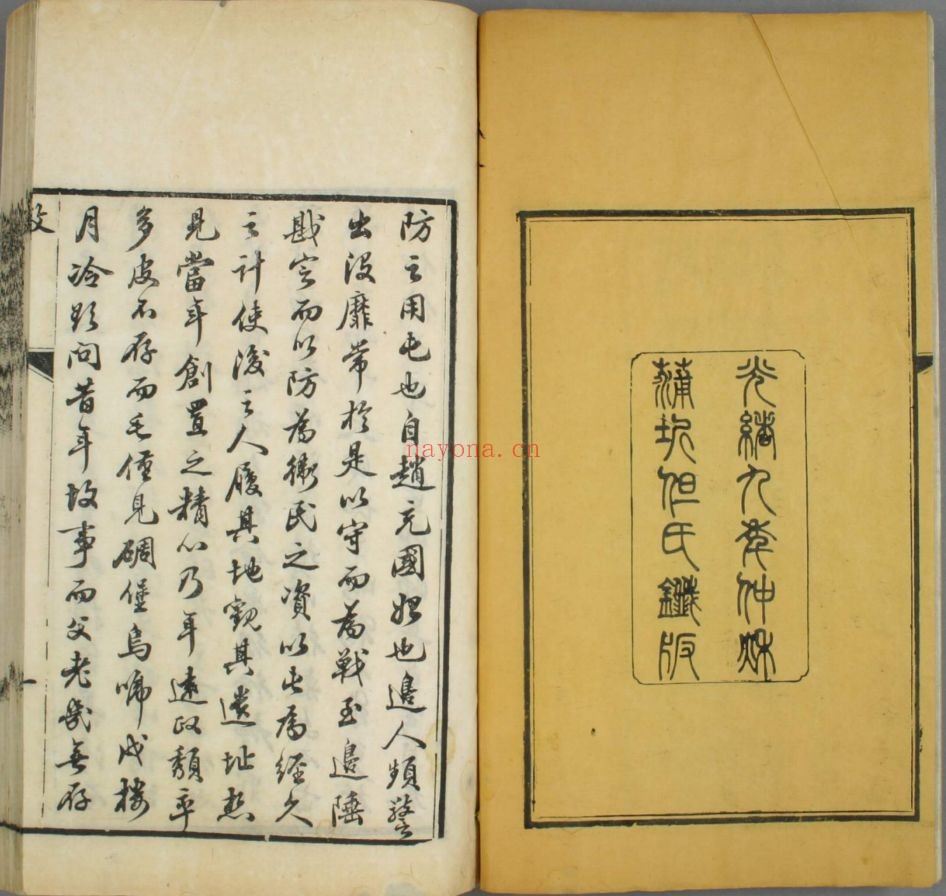 光緒九年仲秋
蒲圻但氏鑱版
防之用屯也自趙充國始也邊人頻警
出没靡常於是以守而為戰至邊陲
戡定而以防為衛民之資以屯為經久
之計使後之人履其地觀其遺址想
見當年創置之精心乃年遠政頹率
多皮不存而毛僅見碉堡烏啼戍樓
月冷欲問昔年故事而父老幾無存
一
nayona.cn